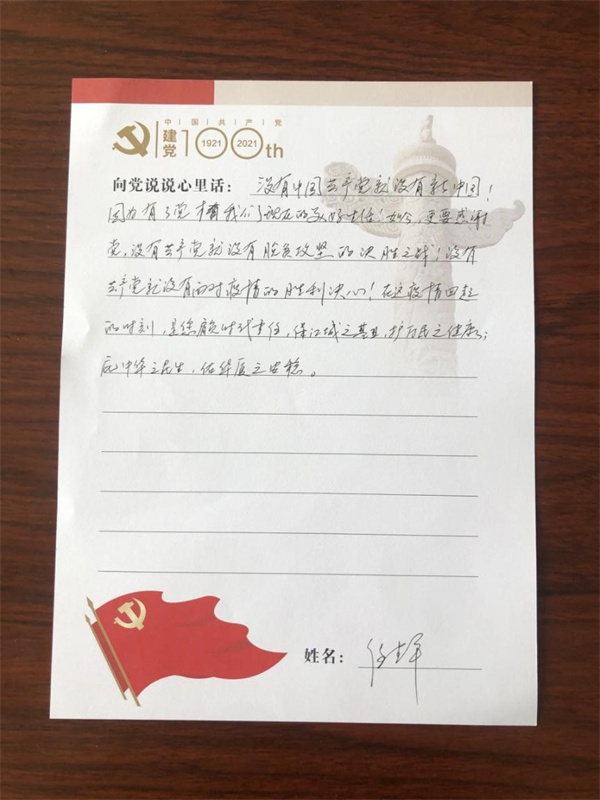 中国共产党
建党 1921 2021 100th
向党说说心里话: 没有中国共产党就没有新中国!
因为有了党才有我们现在的美好生活!如今,更要感谢
党,没有共产党就没有脱贫攻坚的决胜之战!没有
共产党就没有面对疫情的胜利决心!在这疫情四起
的时刻,是您肩负时代重任,保江城之基业,护万民之健康;
庇中华之民生,佑华厦之安稳。
姓名: